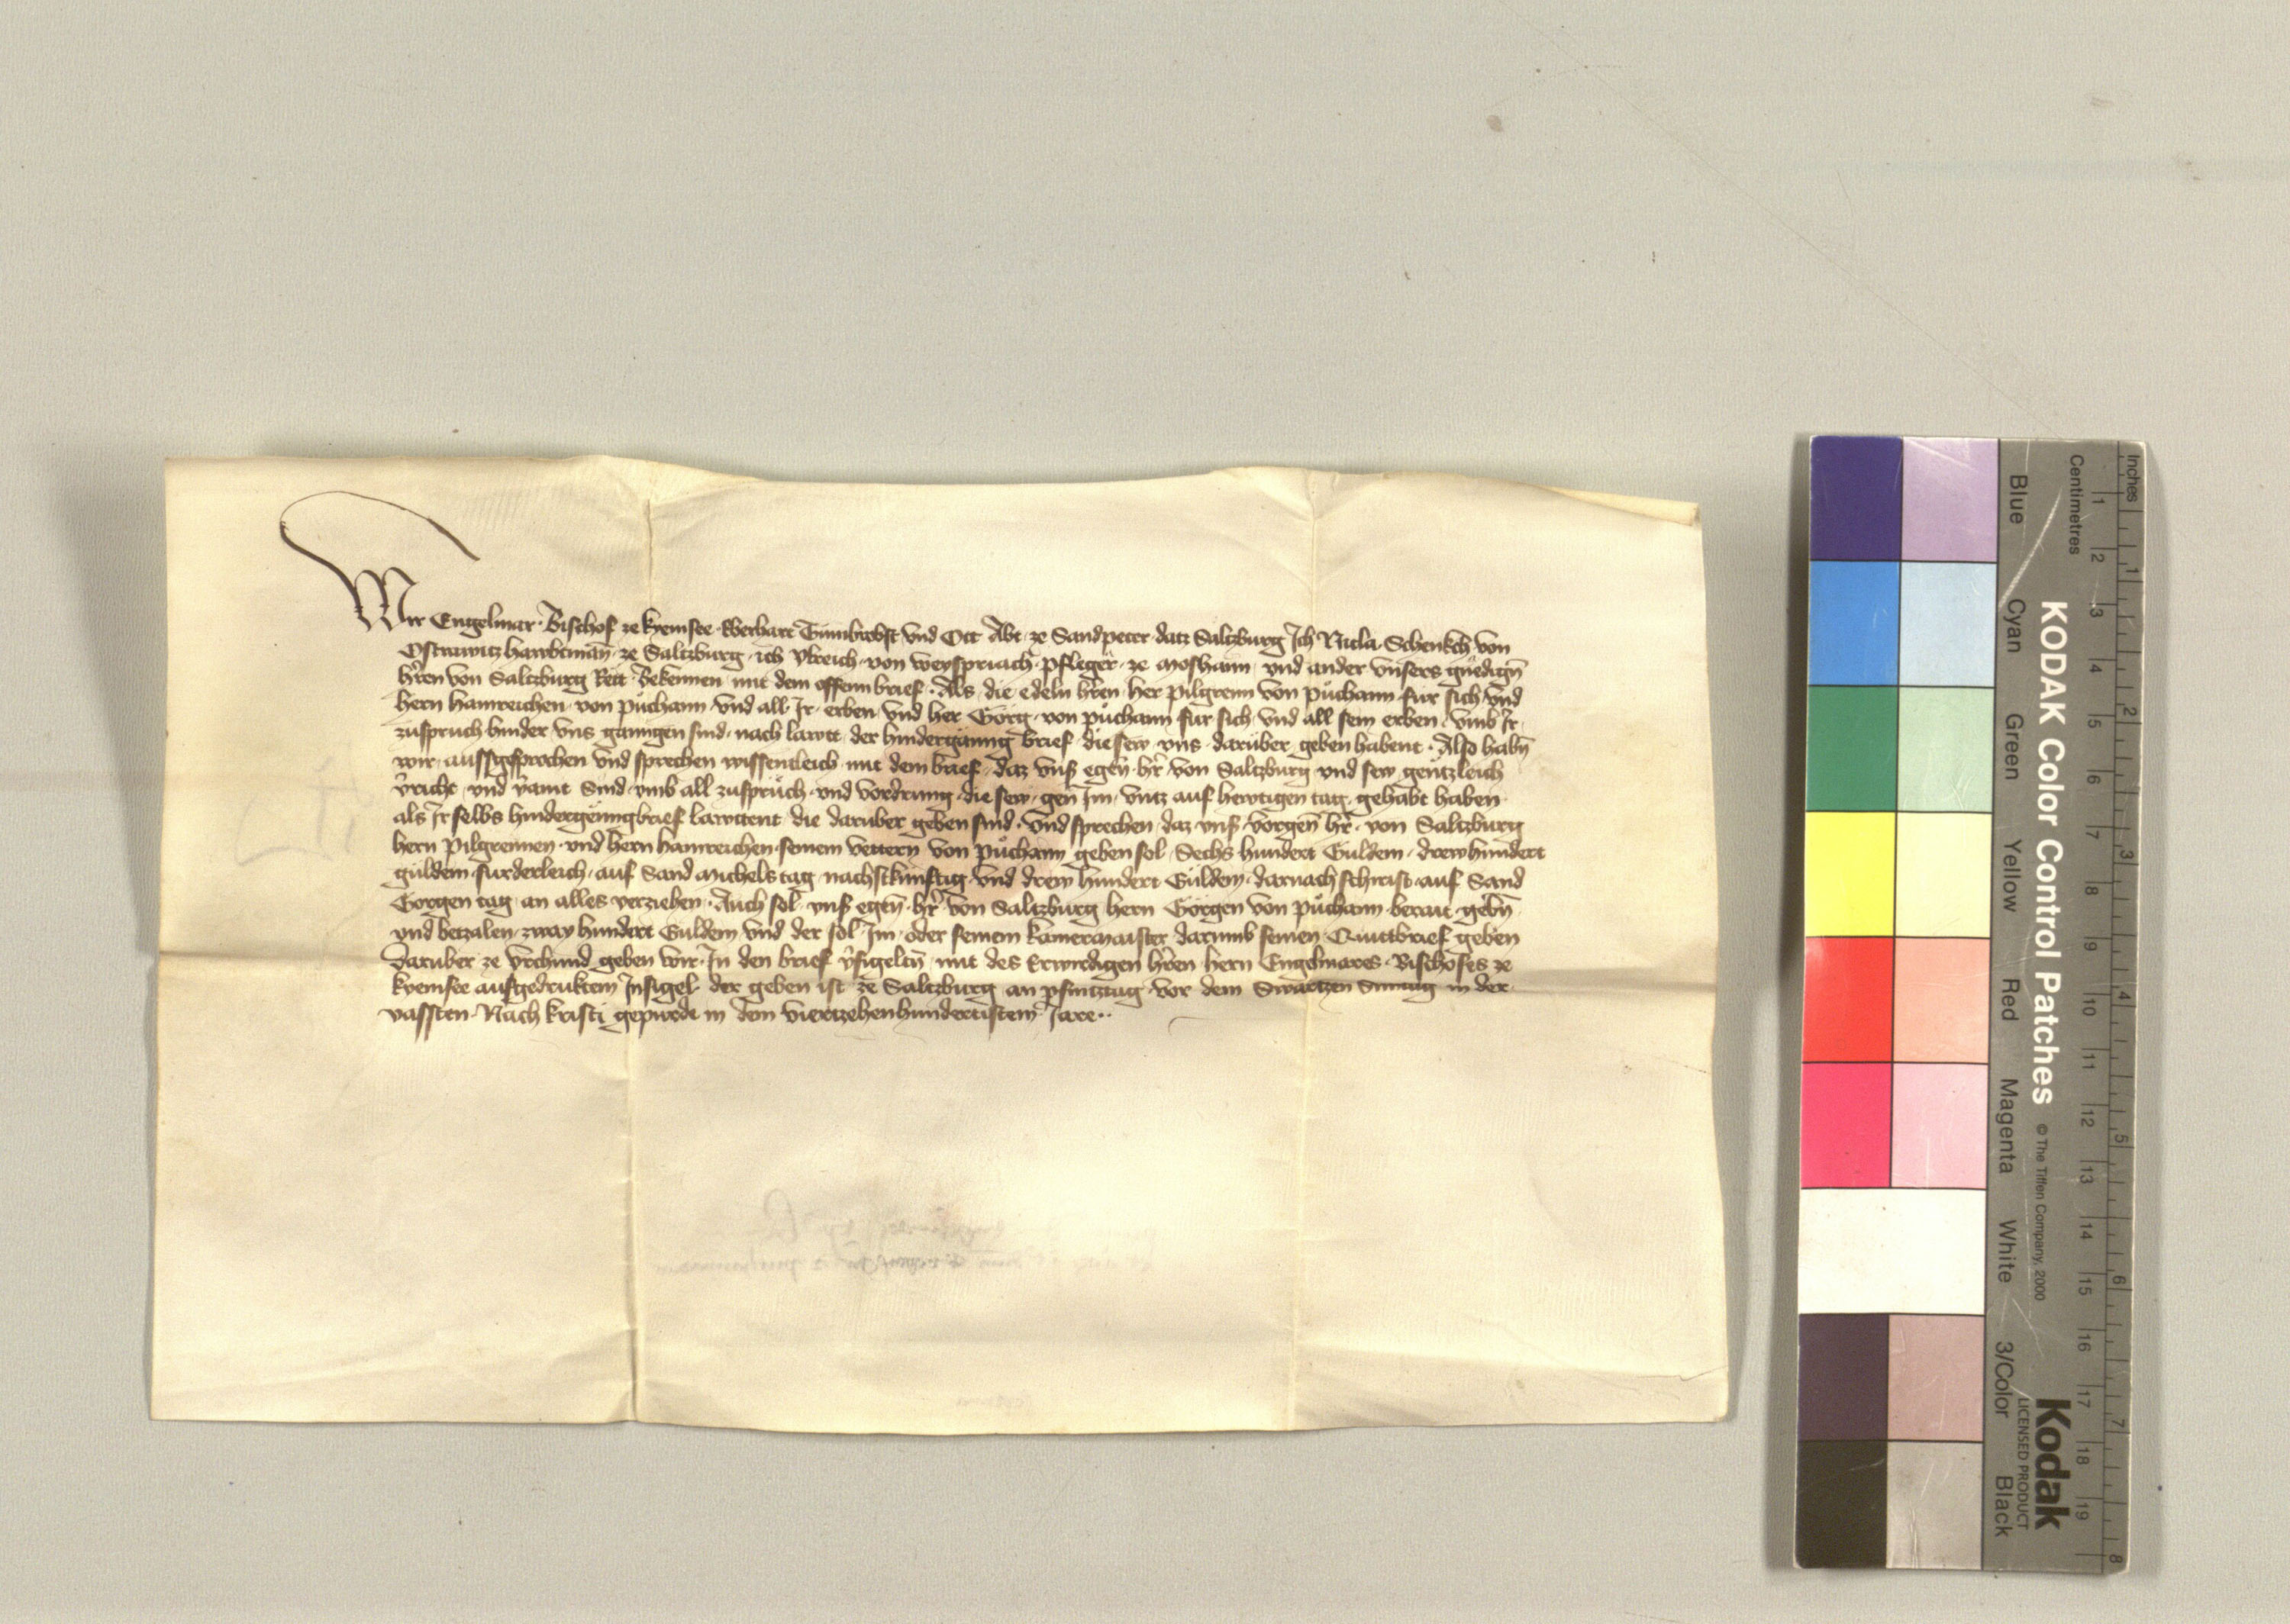 Wir Engelmar Bischof ze kyemsee Eberhart Tumbrobst vnd Ott Abt ze Sandpeter datz Saltzburg Ich Nicla Schenkch von
Ostrawitz hawbtman̄ ze Saltzburg ich Vlreich von weyspriach pfleger ze moshaim vnd ander vnsers gnedign̄
hr̄ren von Saltzburg Rett Bekennen mit dem offenn brief Als die edeln hr̄ren her pilgreim von pů̊chaim fur sich vnd
hern hainreichen von půchaim vnd all Ir erben vnd her Görg von půchaim fur sich vnd all sein erben vmb Ir
zuspruch hinder vns ganngen sind nach lawtt der hindergänng brief die sew vns darüber geben habent Also habn̄
wir aussgesprochen vnd sprechen wissentleich mit dem brief daz vnſ egen̄ hr̄ von Saltzburg vnd sew gentzleich
v̄richt vnd v̄aint Sind vmb all zusprüch vnd vordrung die sew gen Im vntz auf hewtigen tag gehabt haben
als Ir selbs hindergenngbrief lawttent die daruber geben sind vnd sprechen daz vnſ vorgen̄ hr̄ von Saltzburg
hern pilgreimen vnd hern hainreichen seinem vettern von půchaim geben sol Sechs hundert Guldein drewhundert
guldein furderleich auf Sand michels tag nachstkünftig vnd drew hundert Guldein darnach schirist auf Sand
Görgen tag an alles verziehen Auch sol vnſ egen̄ hr̄ von Saltzburg hern Görgen von půchaim berait gebn̄
vnd betzalen zway hundert Guldein vnd der sol Im oder seinem kamermaister darumb seinen Quittbrief geben
Daruber ze vrchund geben wir In den brief v̄sigelten mit des Erwirdigen hr̄ren hern Engelmares Bischofes ze
kyemsee aufgedruktem Insigel der geben ist ze Saltzburg an pfintztag vor dem Swartzen Suntag in der
vassten Nach kristi gepurde in dem viertzehenhundertistem Jare
KODAK Color Control Patches
© The Tiffen Company, 2000
Kodak
LICENSED PRODUCT
Inches
1 2 3 4 5 6 7 8
Centimetres
1 2 3 4 5 6 7 8 9 10 11 12 13 14 15 16 17 18 19
Blue Cyan Green Yellow Red Magenta White 3/Color Black